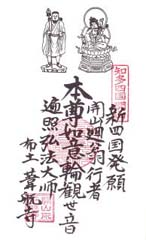 新四国発願
開山廻翁行者
本尊如意輪観世音
遍照弘法大師
布土 葦航寺
知多四国